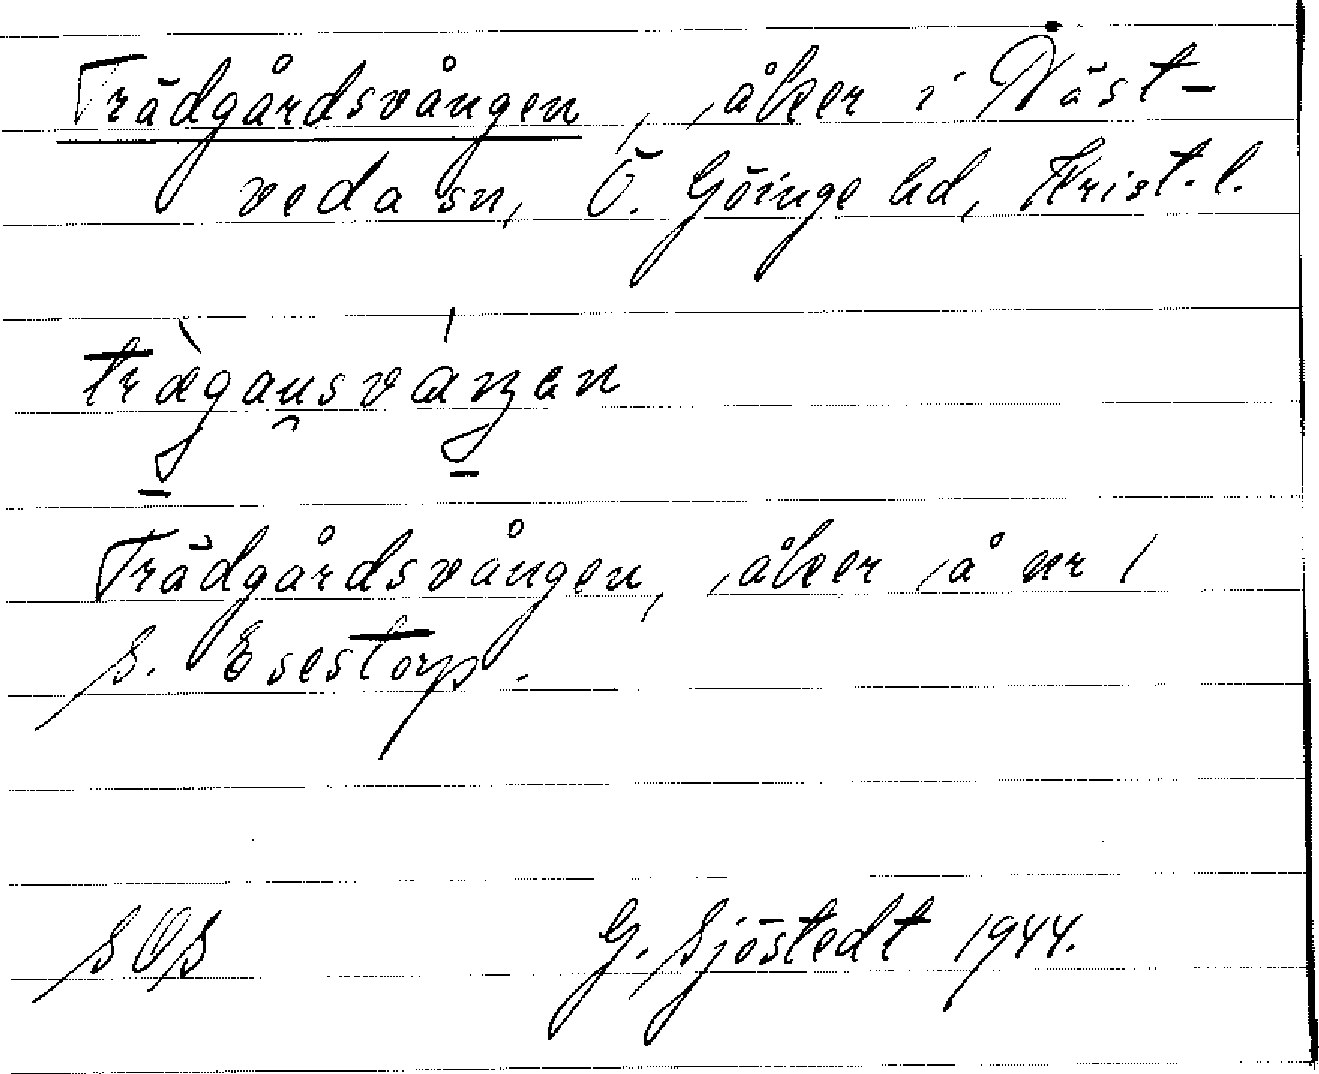 Trädgårdsvången, åker i Näst-
veda sn, Ö. Göinge hd, Krist. l.
trægausváŋen
Trädgårdsvången, åker å nr 1
S. Esestorp.
SOS G. Sjöstedt 1944.